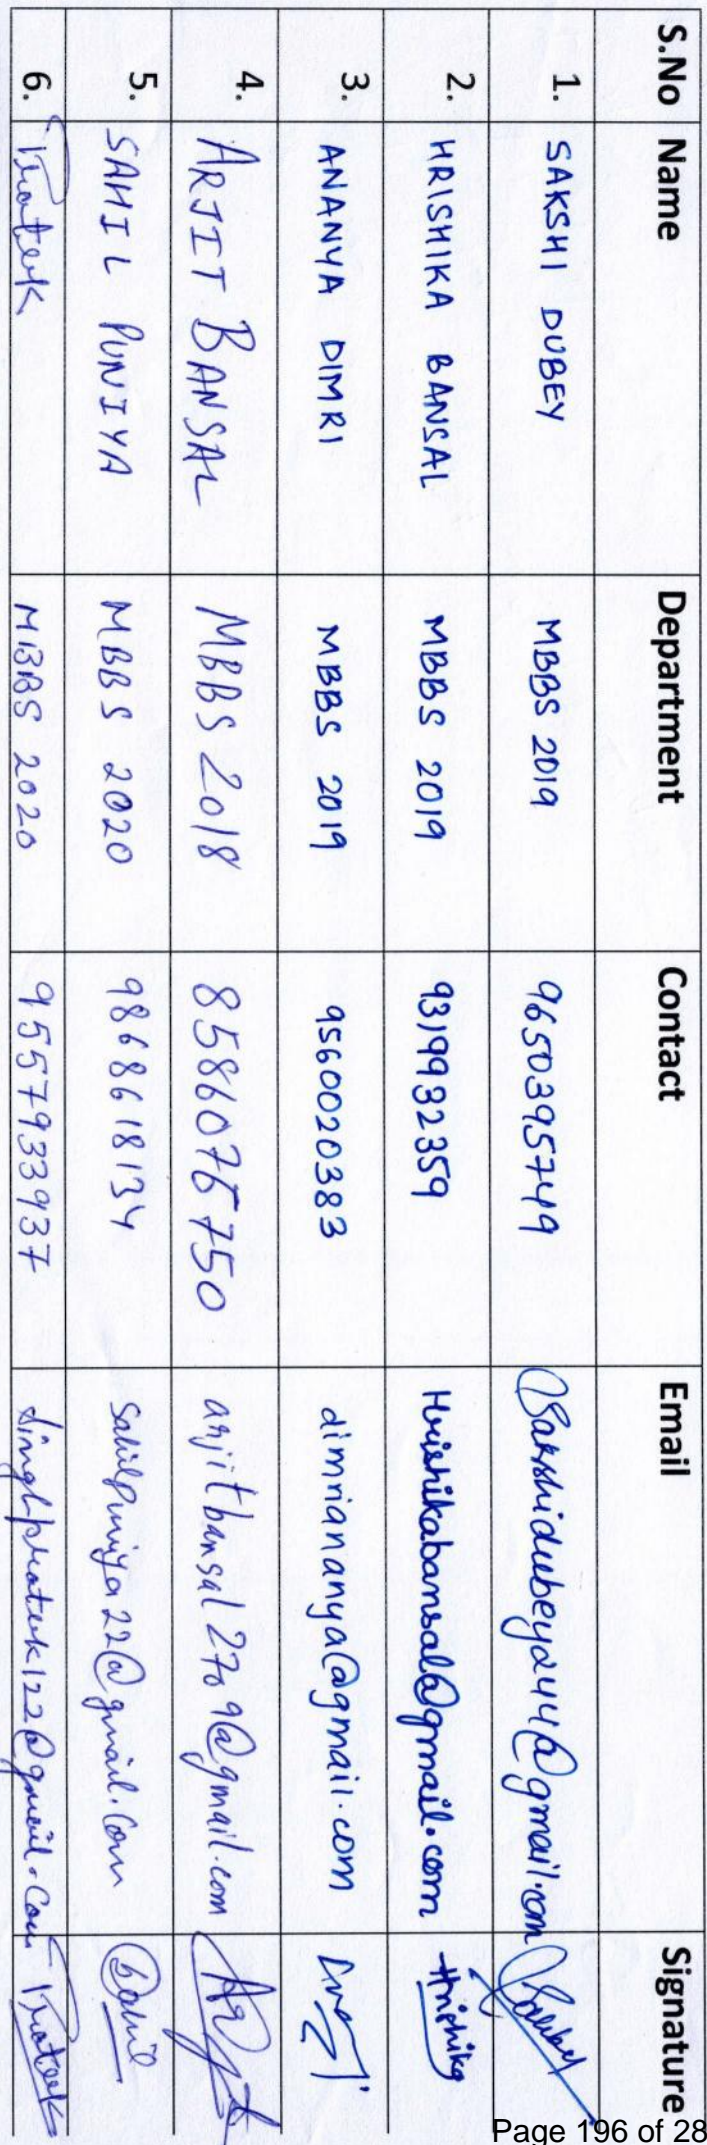 S.No Name Department Contact Email Signature
1. SAKSHI DUBEY MBBS 2019 9650395749 Sakshidubeyd44@gmail.com
2. HRISHIKA BANSAL MBBS 2019 9319932359 Hrishikabansal@gmail.com Hrishika
3. ANANYA DIMRI MBBS 2019 9560020383 dimriananya@gmail.com
4. ARJIT BANSAL MBBS 2018 8586076750 arjitbansal2709@gmail.com
5. SAHIL PUNIYA MBBS 2020 9868618134 Sahilpuniya22@gmail.com Sahil
6. Prateek MBBS 2020 9557933937 singhprateek122@gmail.com Prateek
Page 196 of 28